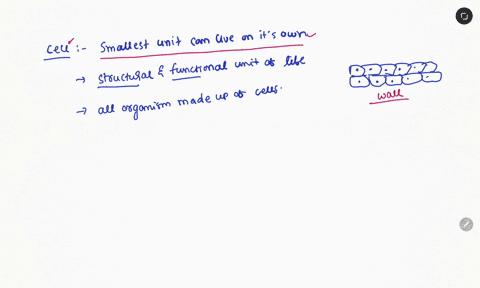 Cell :- Smallest unit can live on it's own
→ structural & functional unit of life
→ all organism made up of cells.
wall